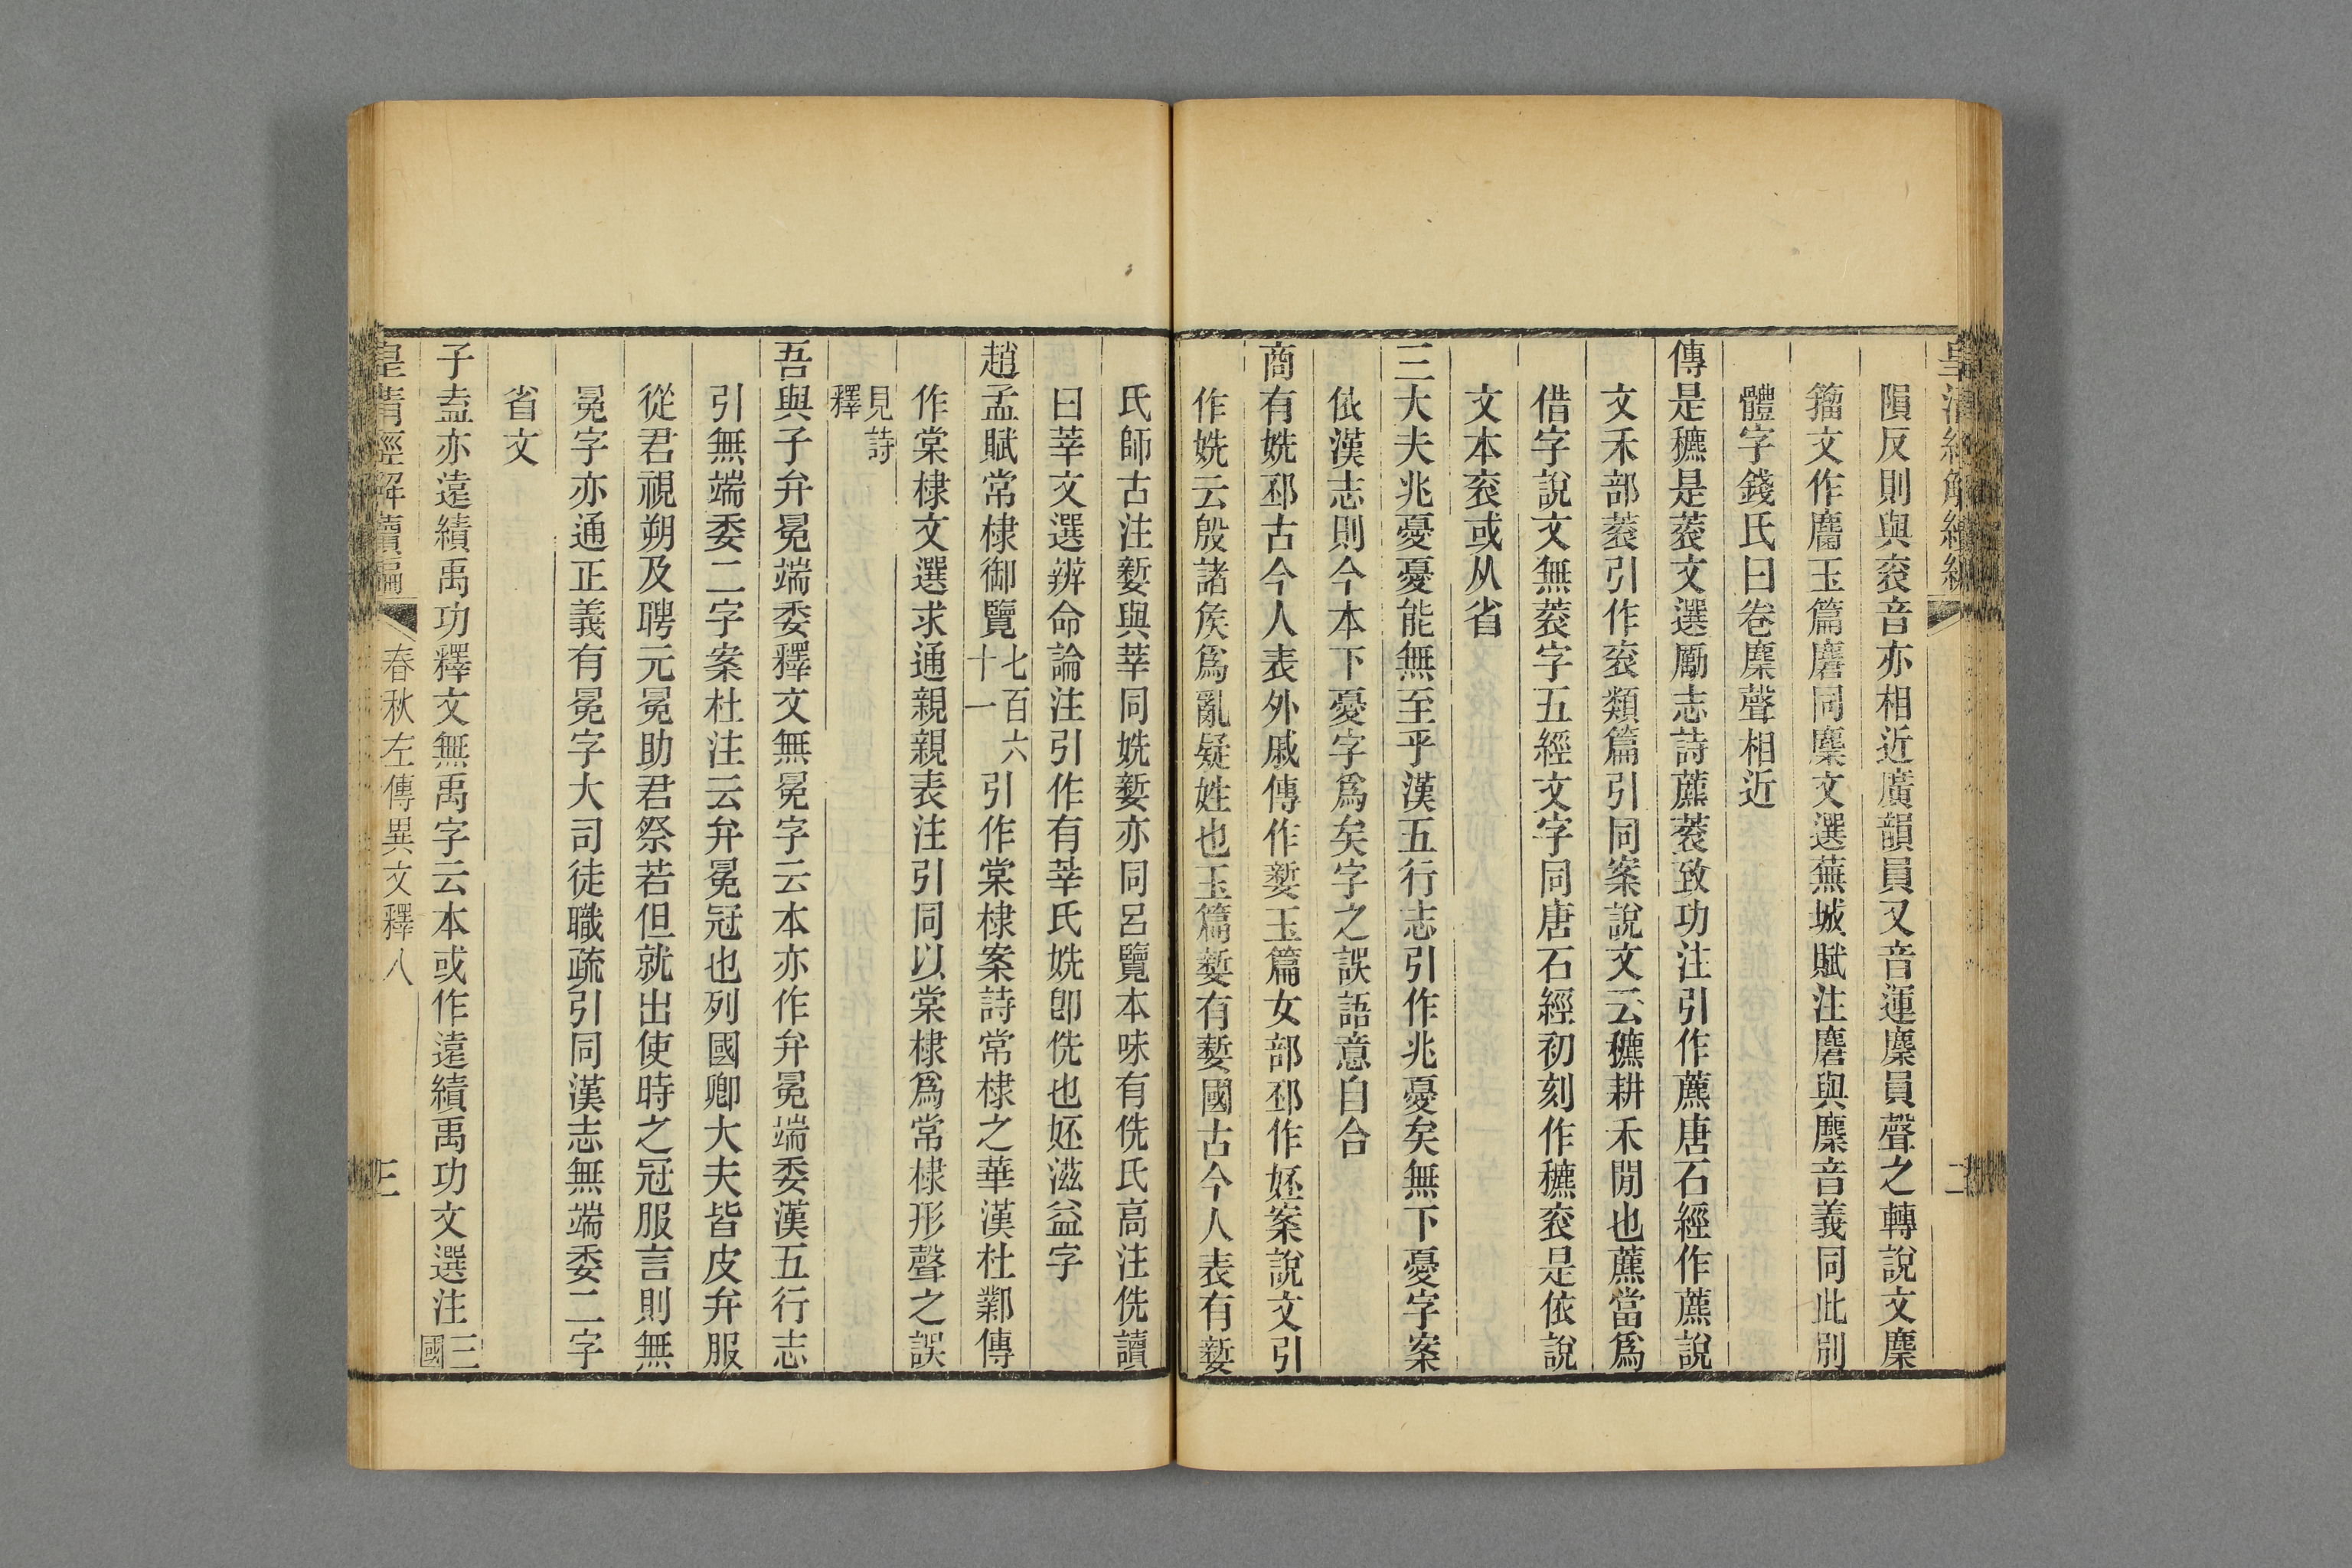 皇清經解續編
二
隕反則與袞音亦相近廣韻員又音運麇員聲之轉說文麇
籀文作麕玉篇麏同麇文選蕪城賦注麏與麇音義同此別
體字錢氏曰卷麇聲相近
傳是穮是蔉文選勵志詩藨蔉致功注引作藨唐石經作藨說
文禾部蔉引作袞類篇引同案說文云穮耕禾閒也藨當爲
借字說文無蔉字五經文字同唐石經初刻作穮袞是依說
文本袞或从省
三大夫兆憂憂能無至乎漢五行志引作兆憂矣無下憂字案
依漢志則今本下憂字爲矣字之誤語意自合
商有姺邳古今人表外戚傳作㜪玉篇女部邳作㚰案說文引
作姺云殷諸矦爲亂疑姓也玉篇㜪有㜪國古今人表有㜪
氏師古注㜪與莘同姺㜪亦同呂覽本味有侁氏高注侁讀
曰莘文選辨命論注引作有莘氏姺卽侁也㚰滋益字
趙孟賦常棣御覽七百六十一引作棠棣案詩常棣之華漢杜鄴傳
作棠棣文選求通親親表注引同以棠棣爲常棣形聲之誤
見詩釋
吾與子弁冕端委釋文無冕字云本亦作弁冕端委漢五行志
引無端委二字案杜注云弁冕冠也列國卿大夫皆皮弁服
從君視朔及聘元冕助君祭若但就出使時之冠服言則無
冕字亦通正義有冕字大司徒職疏引同漢志無端委二字
省文
子盍亦遠績禹功釋文無禹字云本或作遠績禹功文選注三國
皇清經解續編
春秋左傳異文釋八
三